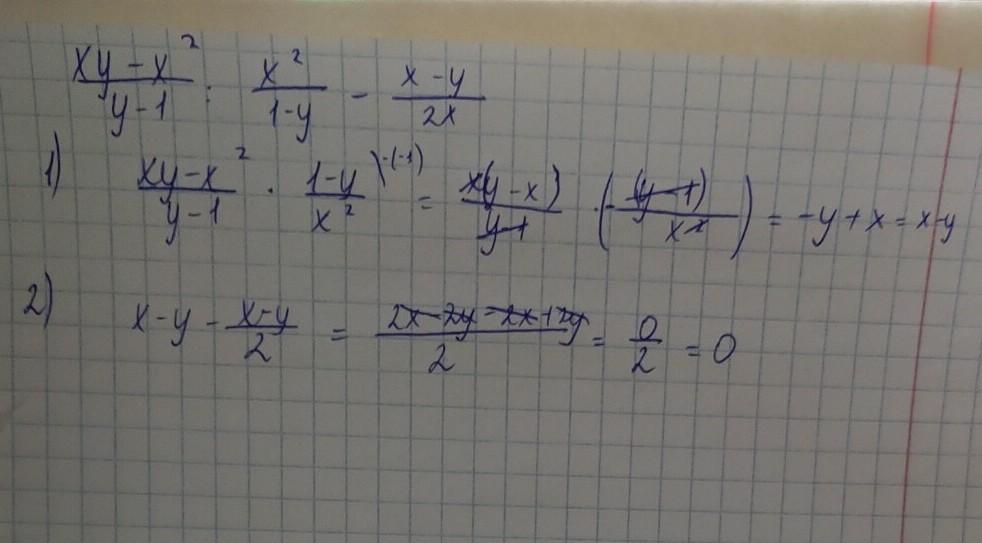 (xy - x²)/(y - 1) : x²/(1 - y) - (x - y)/(2x)
1) (xy - x²)/(y - 1) · (1 - y)/x² \-(-1) = x(y - x)/(y - 1) (-(y - 1)/x²) = -y + x = x - y
2) x - y - (x - y)/2 = (2x - 2y - 2x + 2y)/2 = 0/2 = 0